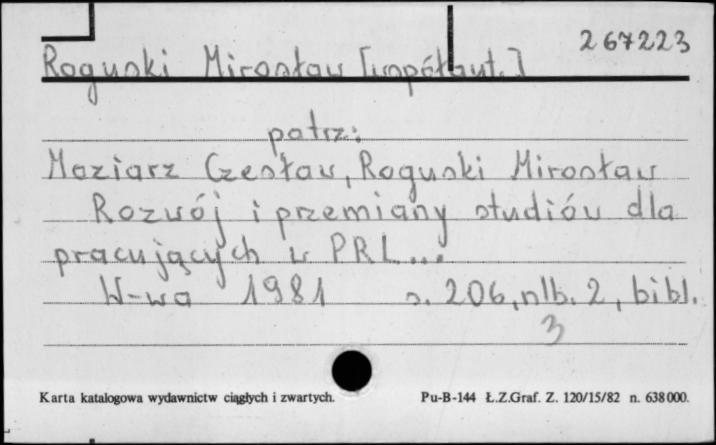 267223
Roguski Mirosław [współaut.]
patrz:
Maziarz Czesław, Roguski Mirosław
Rozwój i przemiany studiów dla
pracujących w PRL...
W-wa 1981 s. 206, nlb. 2, bibl.
3
Karta katalogowa wydawnictw ciągłych i zwartych. Pu-B-144 Ł.Z.Graf. Z. 120/15/82 n. 638000.